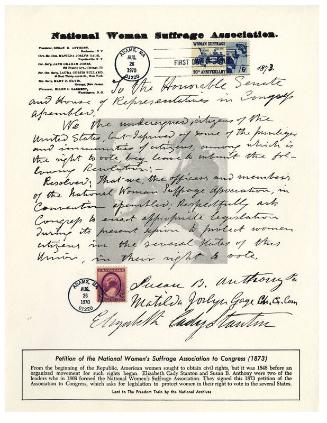 National Woman Suffrage Association.
President, SUSAN B. ANTHONY,
ADAMS, MA
AUG
26
1970
01220
FIRST DAY
WOMAN SUFFRAGE
50TH ANNIVERSARY
6c
1873.
To the Honorable Senate
and House of Representatives in Congress
assembled.
We the undersigned, citizens of the
United States, but deprived of some of the privileges
and immunities of citizens, among which is
the right to vote, beg leave to submit the fol-
lowing Resolution;
Resolved; That we, the officers and members
of the National Woman Suffrage Association, in
Convention assembled, Respectfully ask
Congress to enact appropriate legislation
during its present session to protect women
citizens in the several States of this
Union, in their right to vote.
ADAMS, MA
AUG
26
1970
01220
Susan B. Anthony
Matilda Joslyn Gage Ch. Ex. Com
Elizabeth Cady Stanton
Petition of the National Women's Suffrage Association to Congress (1873)
From the beginning of the Republic, American women sought to obtain civil rights, but it was 1848 before an
organized movement for such rights began. Elizabeth Cady Stanton and Susan B. Anthony were two of the
leaders who in 1869 formed the National Women's Suffrage Association. They signed this 1873 petition of the
Association to Congress, which asks for legislation to protect women in their right to vote in the several States.
Lent to The Freedom Train by the National Archives